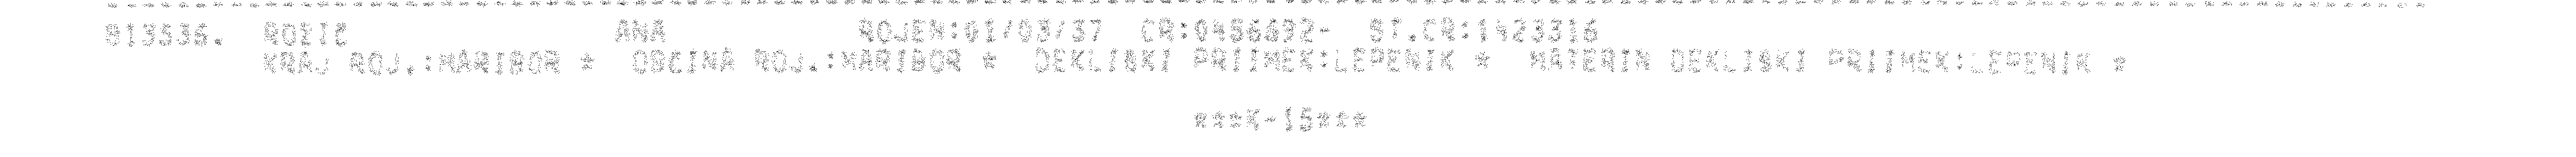 913536. ROZIC ANA ROJEN:01/03/37 CR:0456692- ST.CR:1423316
KRAJ ROJ.:MARIBOR * OBCINA ROJ.:MARIBOR * DEKLISKI PRIIMEK:LEPENIK * MATERIN DEKLISKI PRIIMEK:LEPENIK *
***K-15***